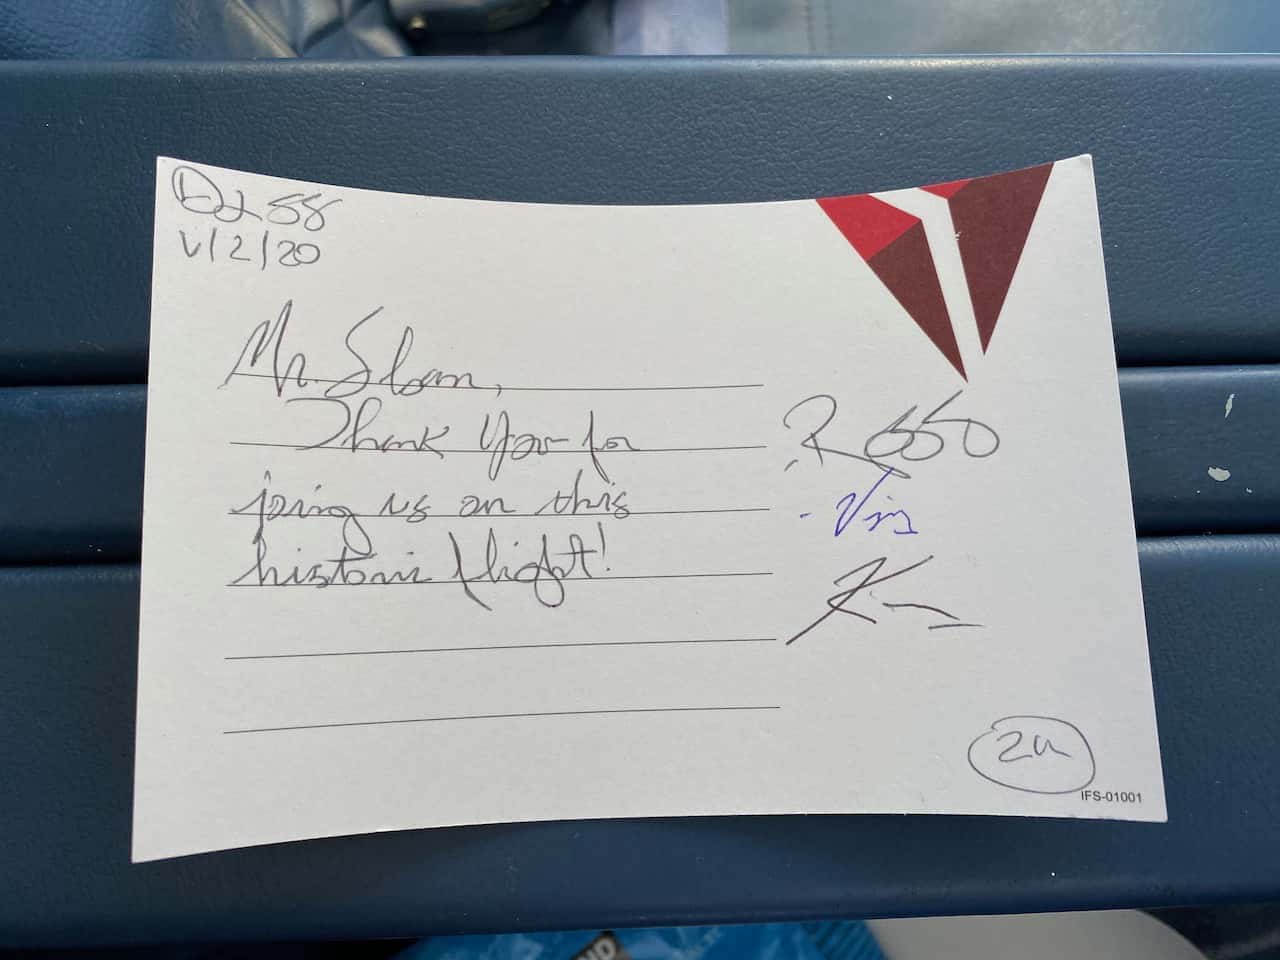 DL 88
6/2/20
Mr. Sloan,
Thank you for
joing us on this
historic flight!
2a
IFS-01001